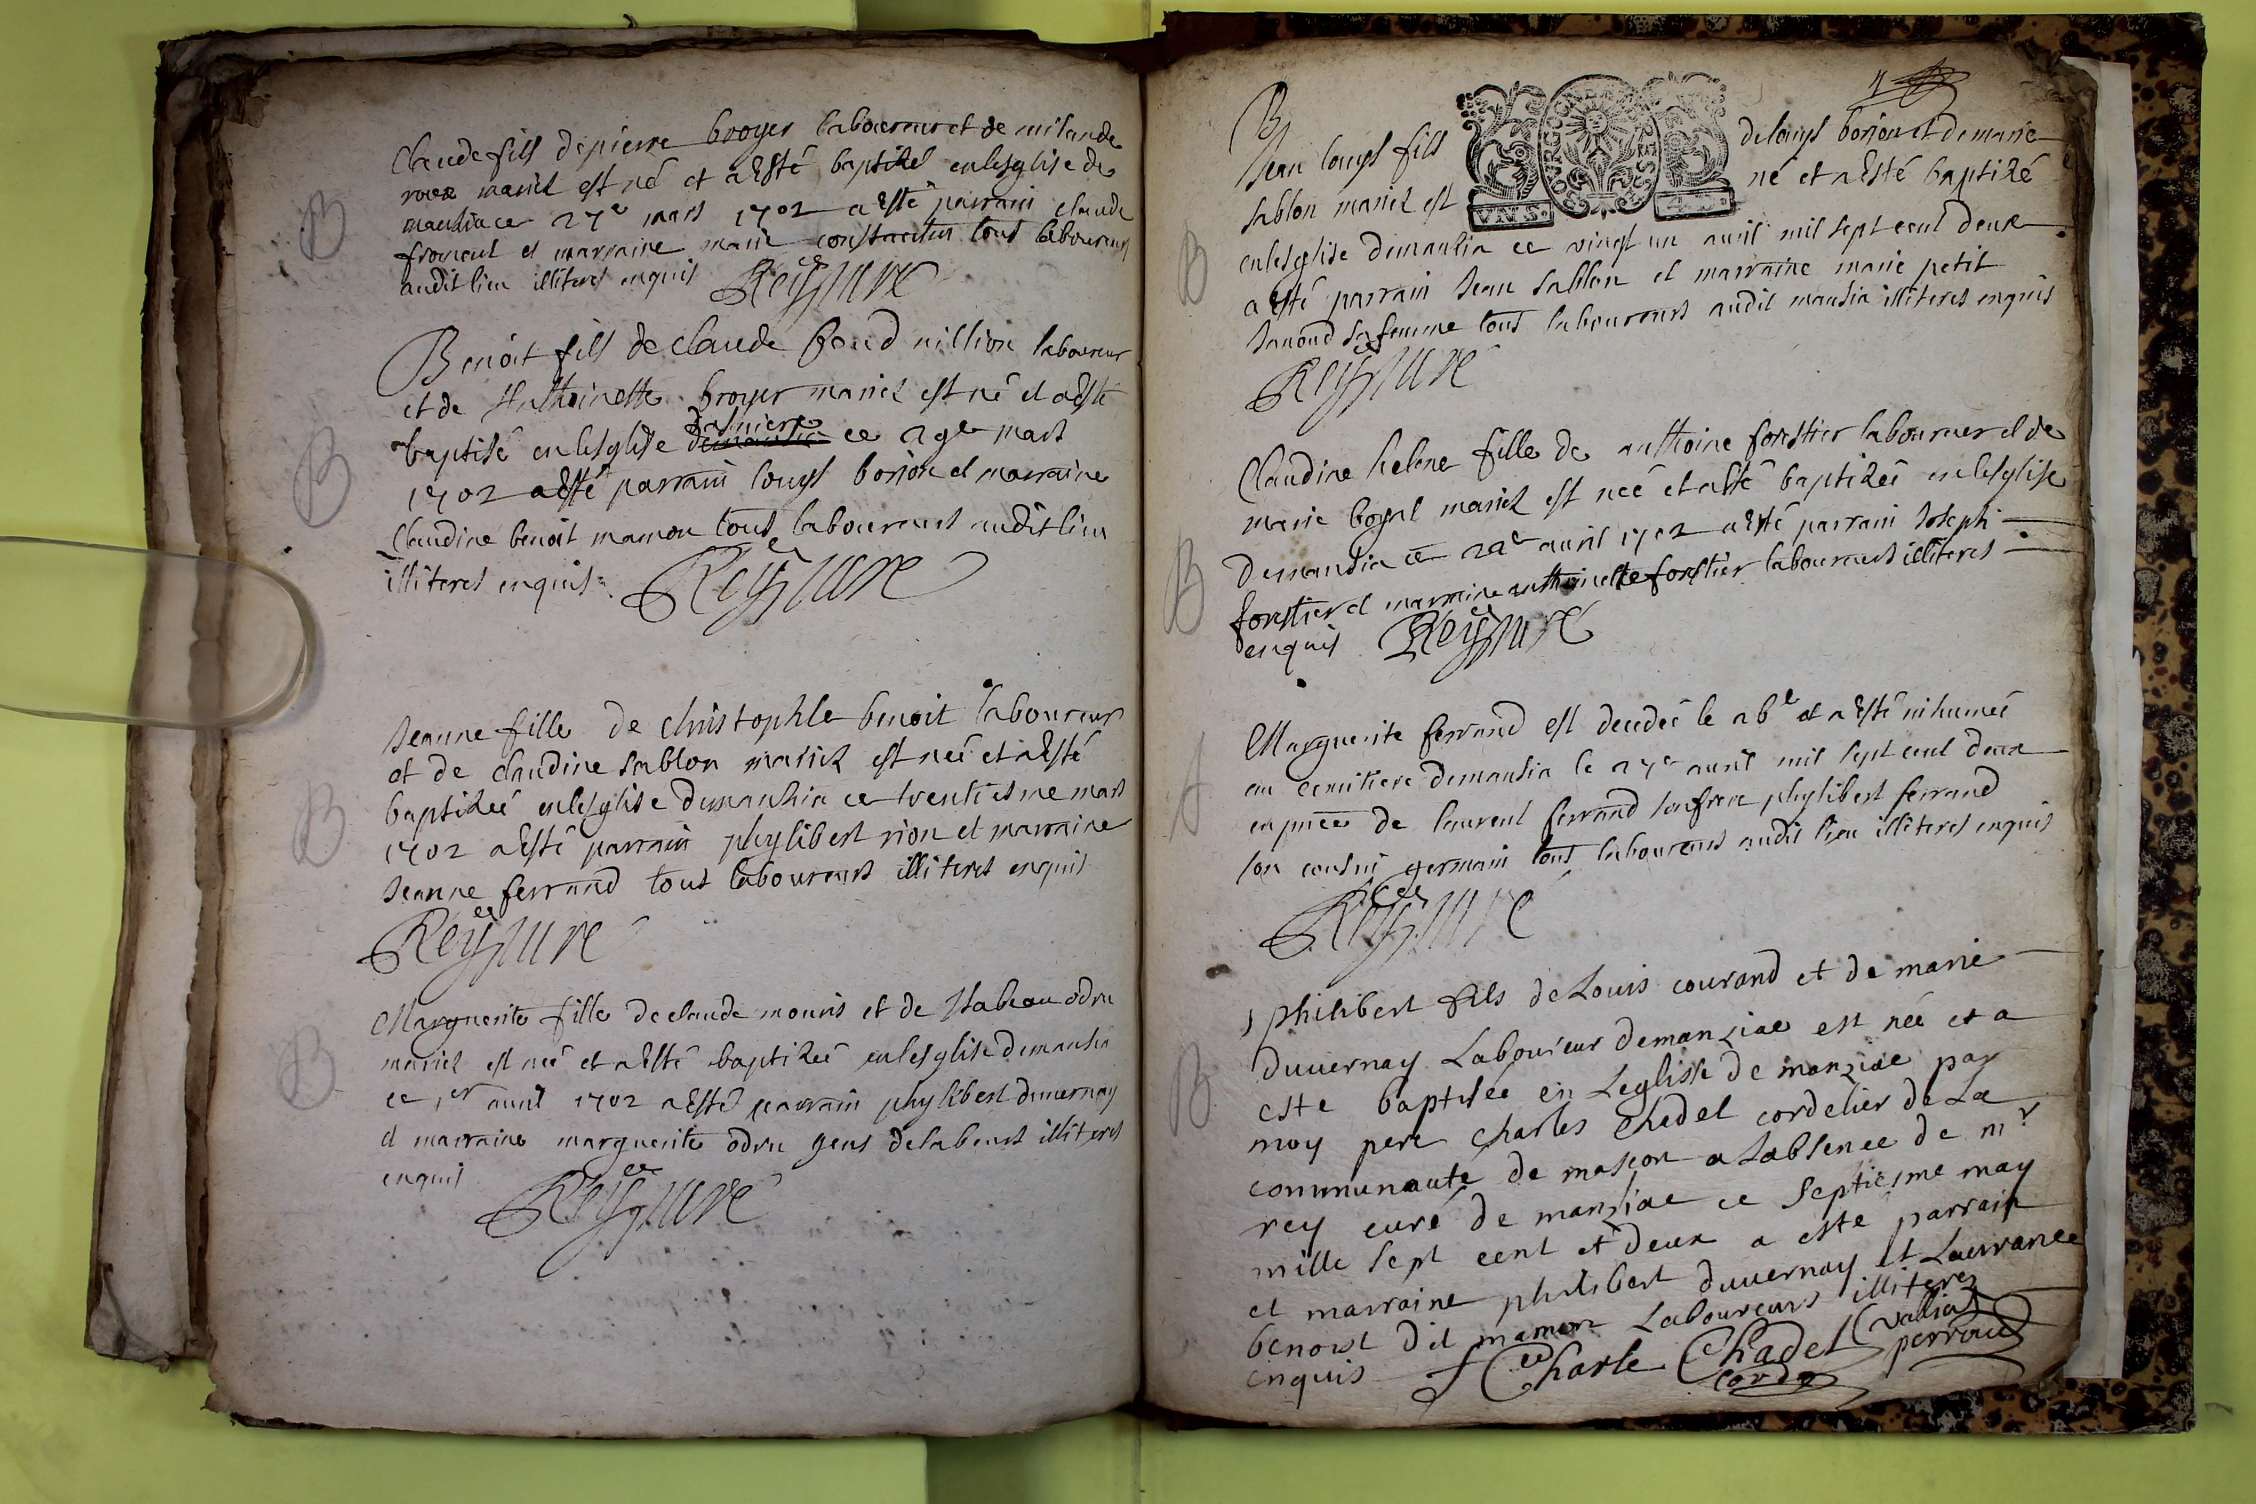 B
Claude fils de pierre broyer laboureur et de
mariez est né et a Esté baptizé en lesglise de
manzia ce 27e mars 1702 a esté parrain claude
froment et marraine marie tous laboureurs
audit lieu illiteres enquis Rey curé
B
Benoit fils de claude fond million laboureur
et de Anthoinette broyer mariez est né et a Esté
baptisé en lesglise demanzia dasnieres ce 29e mars
1702 a Esté parrain louys borion et marraine
Claudine benoit mamon tous laboureurs audit lieu
illiteres enquis Rey curé
B
Jeanne fille de christophle benoit laboureur
et de claudine sablon mariez est neé et a Esté
baptizeé en lesglise demanzia ce trentiesme mars
1702 a Esté parrain phylibert rion et marraine
Jeanne ferrand tous laboureurs illiteres enquis
Rey curé
B
Marguerite fille de claude mouris et de Isabeau odru
mariez est neé et a Esté baptizeé en lesglise demanzia
ce 1er avril 1702 a Esté parrain phylibert duuernay
et marraine marguerite odru gens de labeurs illiteres
enquis
Rey curé
4
B
Jean louys fils de louys borion et de marie
sablon mariez est né et a Esté baptizé
VNS. BOURG EN BRESSE 4D.
B
en lesglise demanzia ce vingt un avril mil sept cent deux
a Esté parrain Jean sablon et marraine marie petit
Janond sa femme tous laboureurs audit manzia illiteres enquis
Rey curé
B
Claudine helene fille de anthoine forestier laboureur et de
marie boyat mariez est neé et a Esté baptizeé en lesglise
demanzia ce avril 1702 a Esté parrain Joseph
forestier et marraine anthoinette forestier laboureurs illiteres
enquis Rey curé
Marguerite ferrand est decedeé le 26e et a Esté inhumeé
au cemitiere demanzia le 27e avril mil sept cent deux
en pnce de laurent ferrand son frere phylibert ferrand
son cousin germain tous laboureurs audit lieu illiteres enquis
Rey curé
B
philibert fils de Louis courand et de marie
duuernay Laboureur demanziae est née et a
este baptisée en Leglisse de manziae par
moy pere charles chadel cordelier de La
communauté de mascon a Labsence de mr
rey curé de manziae ce septiesme may
mille sept cent et deux a esté parrain
et marraine philibert duuernay et Laurance
benoist dit mamon Laboureurs illiterez
enquis f Charle Chadel
cord
perraud